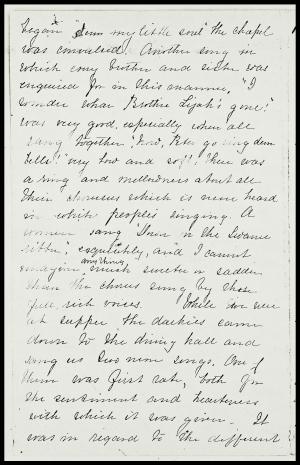 began "Dem my little soul" the chapel
was convulsed. Another song in
which every brother and sister was
enquired for in this manner, "I
wonder whar Brother Lijah's gone!"
was very good, especially when all
sang together "Lord, Peter go ring dem
bells!" very low and soft! There was
a ring and mellowness about all
their choruses which is never heard
in white people's singing. A
woman sang "Down in the Swanee
ribber", exquisitely, and I cannot
imagine anything much sweeter or sadder
than the chorus sung by these
full, rich voices. While we were
at supper the darkies came
down to the dining hall and
sang us two new songs. One of
them was first rate, both for
the sentiment and heartiness
with which it was given. It
was in regard to the different